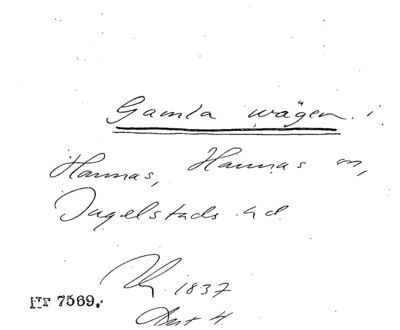 Gamla vägen i
Hannas, Hannas sn,
Ingelstads hd
1837
Akt 4.
HT 7569.